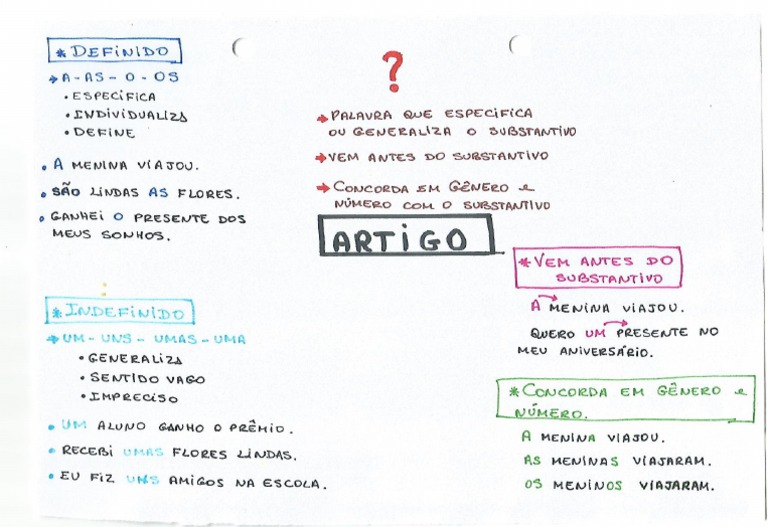 * DEFINIDO
→ A - AS - O - OS
• ESPECIFICA
• INDIVIDUALIZA
• DEFINE
• A MENINA VIAJOU.
• SÃO LINDAS AS FLORES.
• GANHEI O PRESENTE DOS
MEUS SONHOS.
?
→ PALAVRA QUE ESPECIFICA
OU GENERALIZA O SUBSTANTIVO
→ VEM ANTES DO SUBSTANTIVO
→ CONCORDA EM GÊNERO e
NÚMERO COM O SUBSTANTIVO
ARTIGO
* INDEFINIDO
→ UM - UNS - UMAS - UMA
• GENERALIZA
• SENTIDO VAGO
• IMPRECISO
• UM ALUNO GANHO O PRÊMIO.
• RECEBI UMAS FLORES LINDAS.
• EU FIZ UNS AMIGOS NA ESCOLA.
* VEM ANTES DO
SUBSTANTIVO
A MENINA VIAJOU.
QUERO UM PRESENTE NO
MEU ANIVERSÁRIO.
* CONCORDA EM GÊNERO e
NÚMERO.
A MENINA VIAJOU.
AS MENINAS VIAJARAM.
OS MENINOS VIAJARAM.